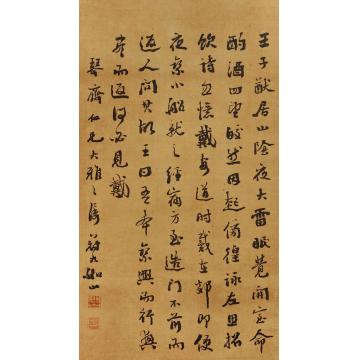 王子猷居山陰夜大雪眠覺開室命
酌酒四望皎然因起彷徨詠左思招
隱詩忽憶戴安道時戴在剡即便
夜乘小船就之經宿方至造門不前而
返人問其故王曰吾本乘興而行興
盡而返何必見戴
琴齋仁兄大雅之屬 冠九如山